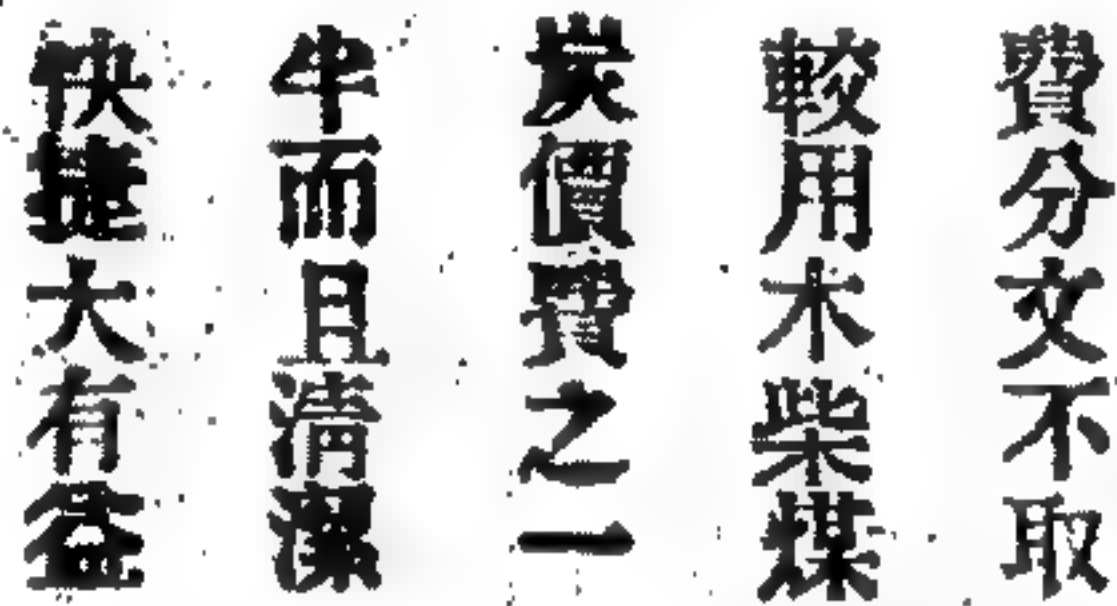 費分文不取
較用木柴煤
炭價費之一
半而且清潔
快捷大有益